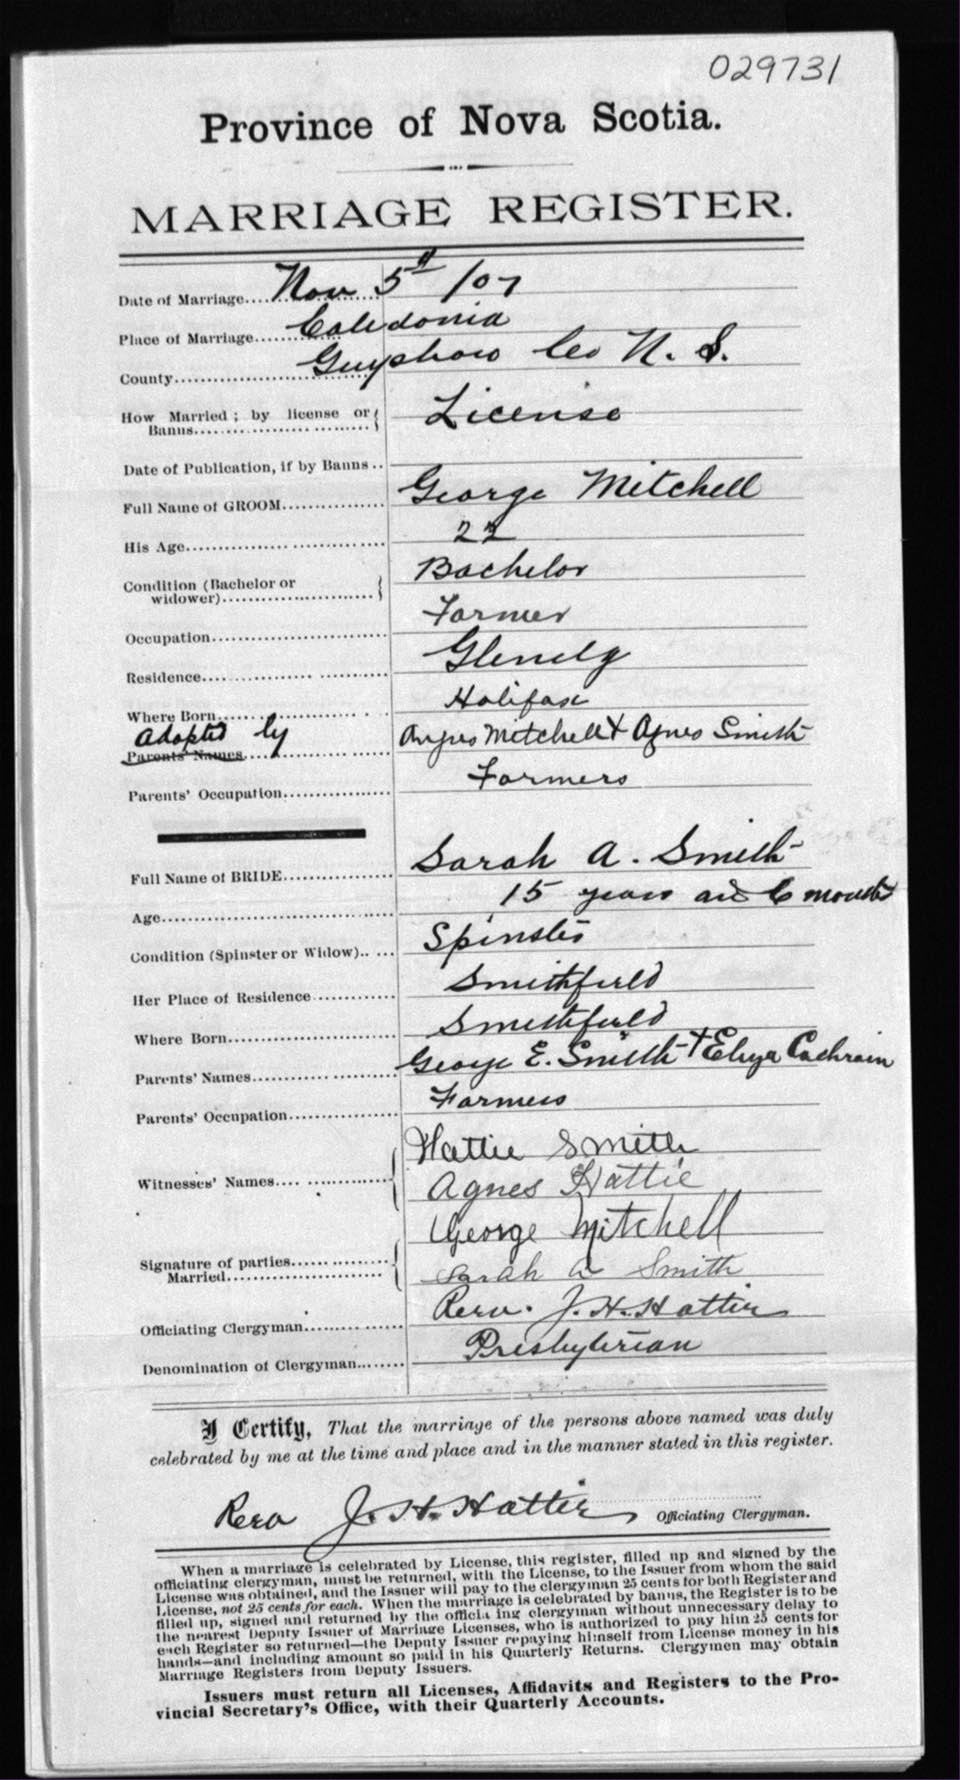 029731
Province of Nova Scotia.
MARRIAGE REGISTER.
Date of Marriage.... Nov 5th /07
Place of Marriage....... Caledonia
County........................ Guysboro Co N. S.
How Married ; by license or
Banns.................... License
Date of Publication, if by Banns..
Full Name of GROOM............... George Mitchell
His Age............................. 22
Condition (Bachelor or
widower)...................... Bachelor
Occupation......................... Farmer
Residence........................... Glenelg
Where Born......................... Halifax
Adopted by
Parents' Names................ Angus Mitchell & Agnes Smith
Parents' Occupation............... Farmers
Full Name of BRIDE............... Sarah A. Smith
Age................................. 15 years and 6 months
Condition (Spinster or Widow)..... Spinster
Her Place of Residence............ Smithfield
Where Born......................... Smithfield
Parents' Names..................... George E. Smith + Eliza Cochrain
Parents' Occupation............... Farmers
Hattie Smith
Witnesses' Names.... ............ Agnes Hattie
George Mitchell
Signature of parties..............
Married...................... Sarah A Smith
Officiating Clergyman............. Rev. J. H. Hattie
Denomination of Clergyman....... Presbyterian
I Certify, That the marriage of the persons above named was duly
celebrated by me at the time and place and in the manner stated in this register.
Rev J. H. Hattie Officiating Clergyman.
When a marriage is celebrated by License, this register, filled up and signed by the
officiating clergyman, must be returned, with the License, to the Issuer from whom the said
License was obtained, and the Issuer will pay to the clergyman 25 cents for both Register and
License, not 25 cents for each. When the marriage is celebrated by banns, the Register is to be
filled up, signed and returned by the officia ing clergyman without unnecessary delay to
the nearest Deputy Issuer of Marriage Licenses, who is authorized to pay him 25 cents for
each Register so returned—the Deputy Issuer repaying himself from License money in his
hands—and including amount so paid in his Quarterly Returns. Clergymen may obtain
Marriage Registers from Deputy Issuers.
Issuers must return all Licenses, Affidavits and Registers to the Pro-
vincial Secretary's Office, with their Quarterly Accounts.